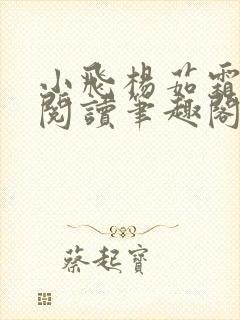 小飛楊茹霜
閱讀筆趣閣
蔡起寶